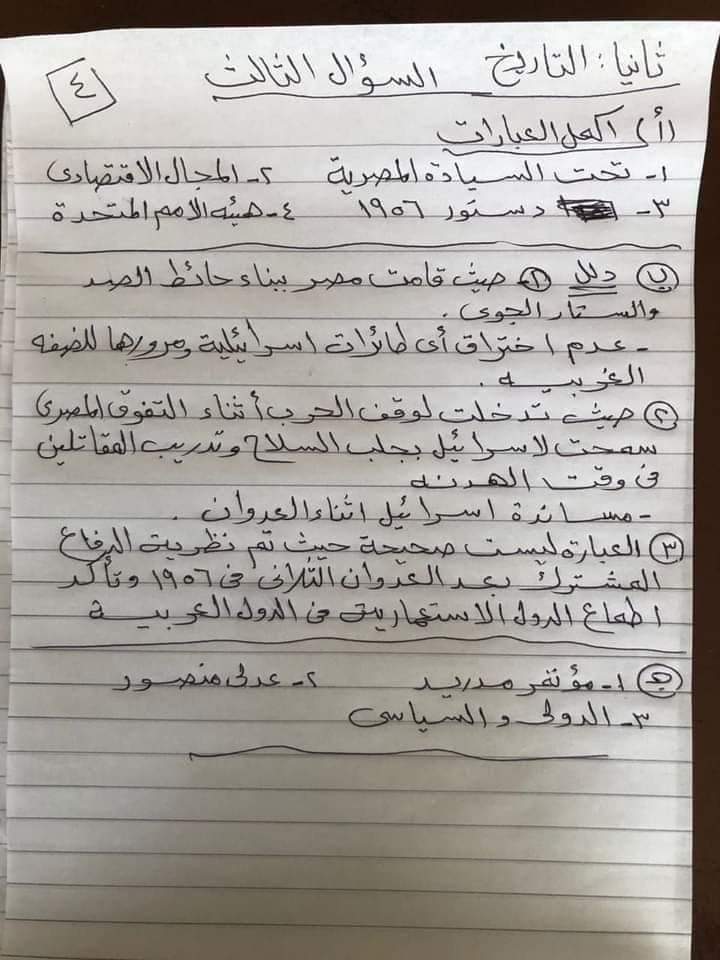 ثانيا: التاريخ السؤال الثالث
٤
(أ) اكمل العبارات
١- تحت السيادة المصرية ٢- المجال الاقتصادى
٣- دستور ١٩٥٦ ٤- هيئه الامم المتحدة
ب دلل ١ حيث قامت مصر ببناء حائط الصد
والستار الجوى .
- عدم اختراق أى طائرات اسرائيلية ومرورها للضفه
الغربيه .
٢ حيث تدخلت لوقف الحرب أثناء التفوق المصرى
سمحت لاسرائيل بجلب السلاح وتدريب المقاتلين
فى وقت الهدنه
- مساندة اسرائيل اثناء العدوان .
٣ العبارة ليست صحيحة حيث تم نظرية الدفاع
المشترك بعد العدوان الثلاثى فى ١٩٥٦ وتأكد
اطماع الدول الاستعمارية فى الدول العربية
١- مؤتمر مدريد ٢- عدلى منصور
٣- الدولى والسياسى